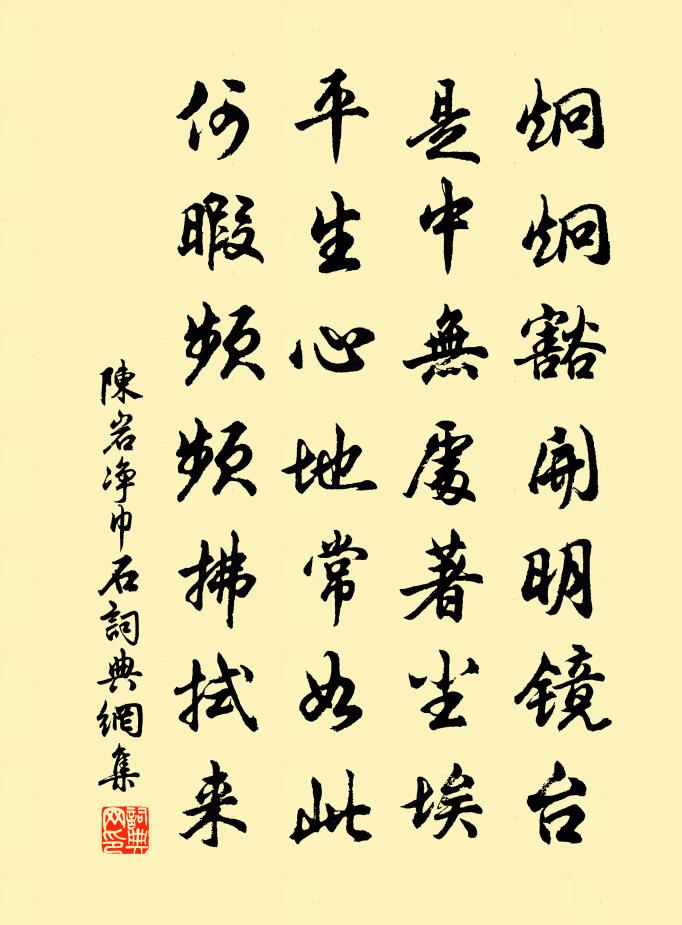 炯炯豁開明镜台
是中無處著尘埃
平生心地常如此
何暇頻頻拂拭来
陳岩净巾石詞典網集
詞典网印